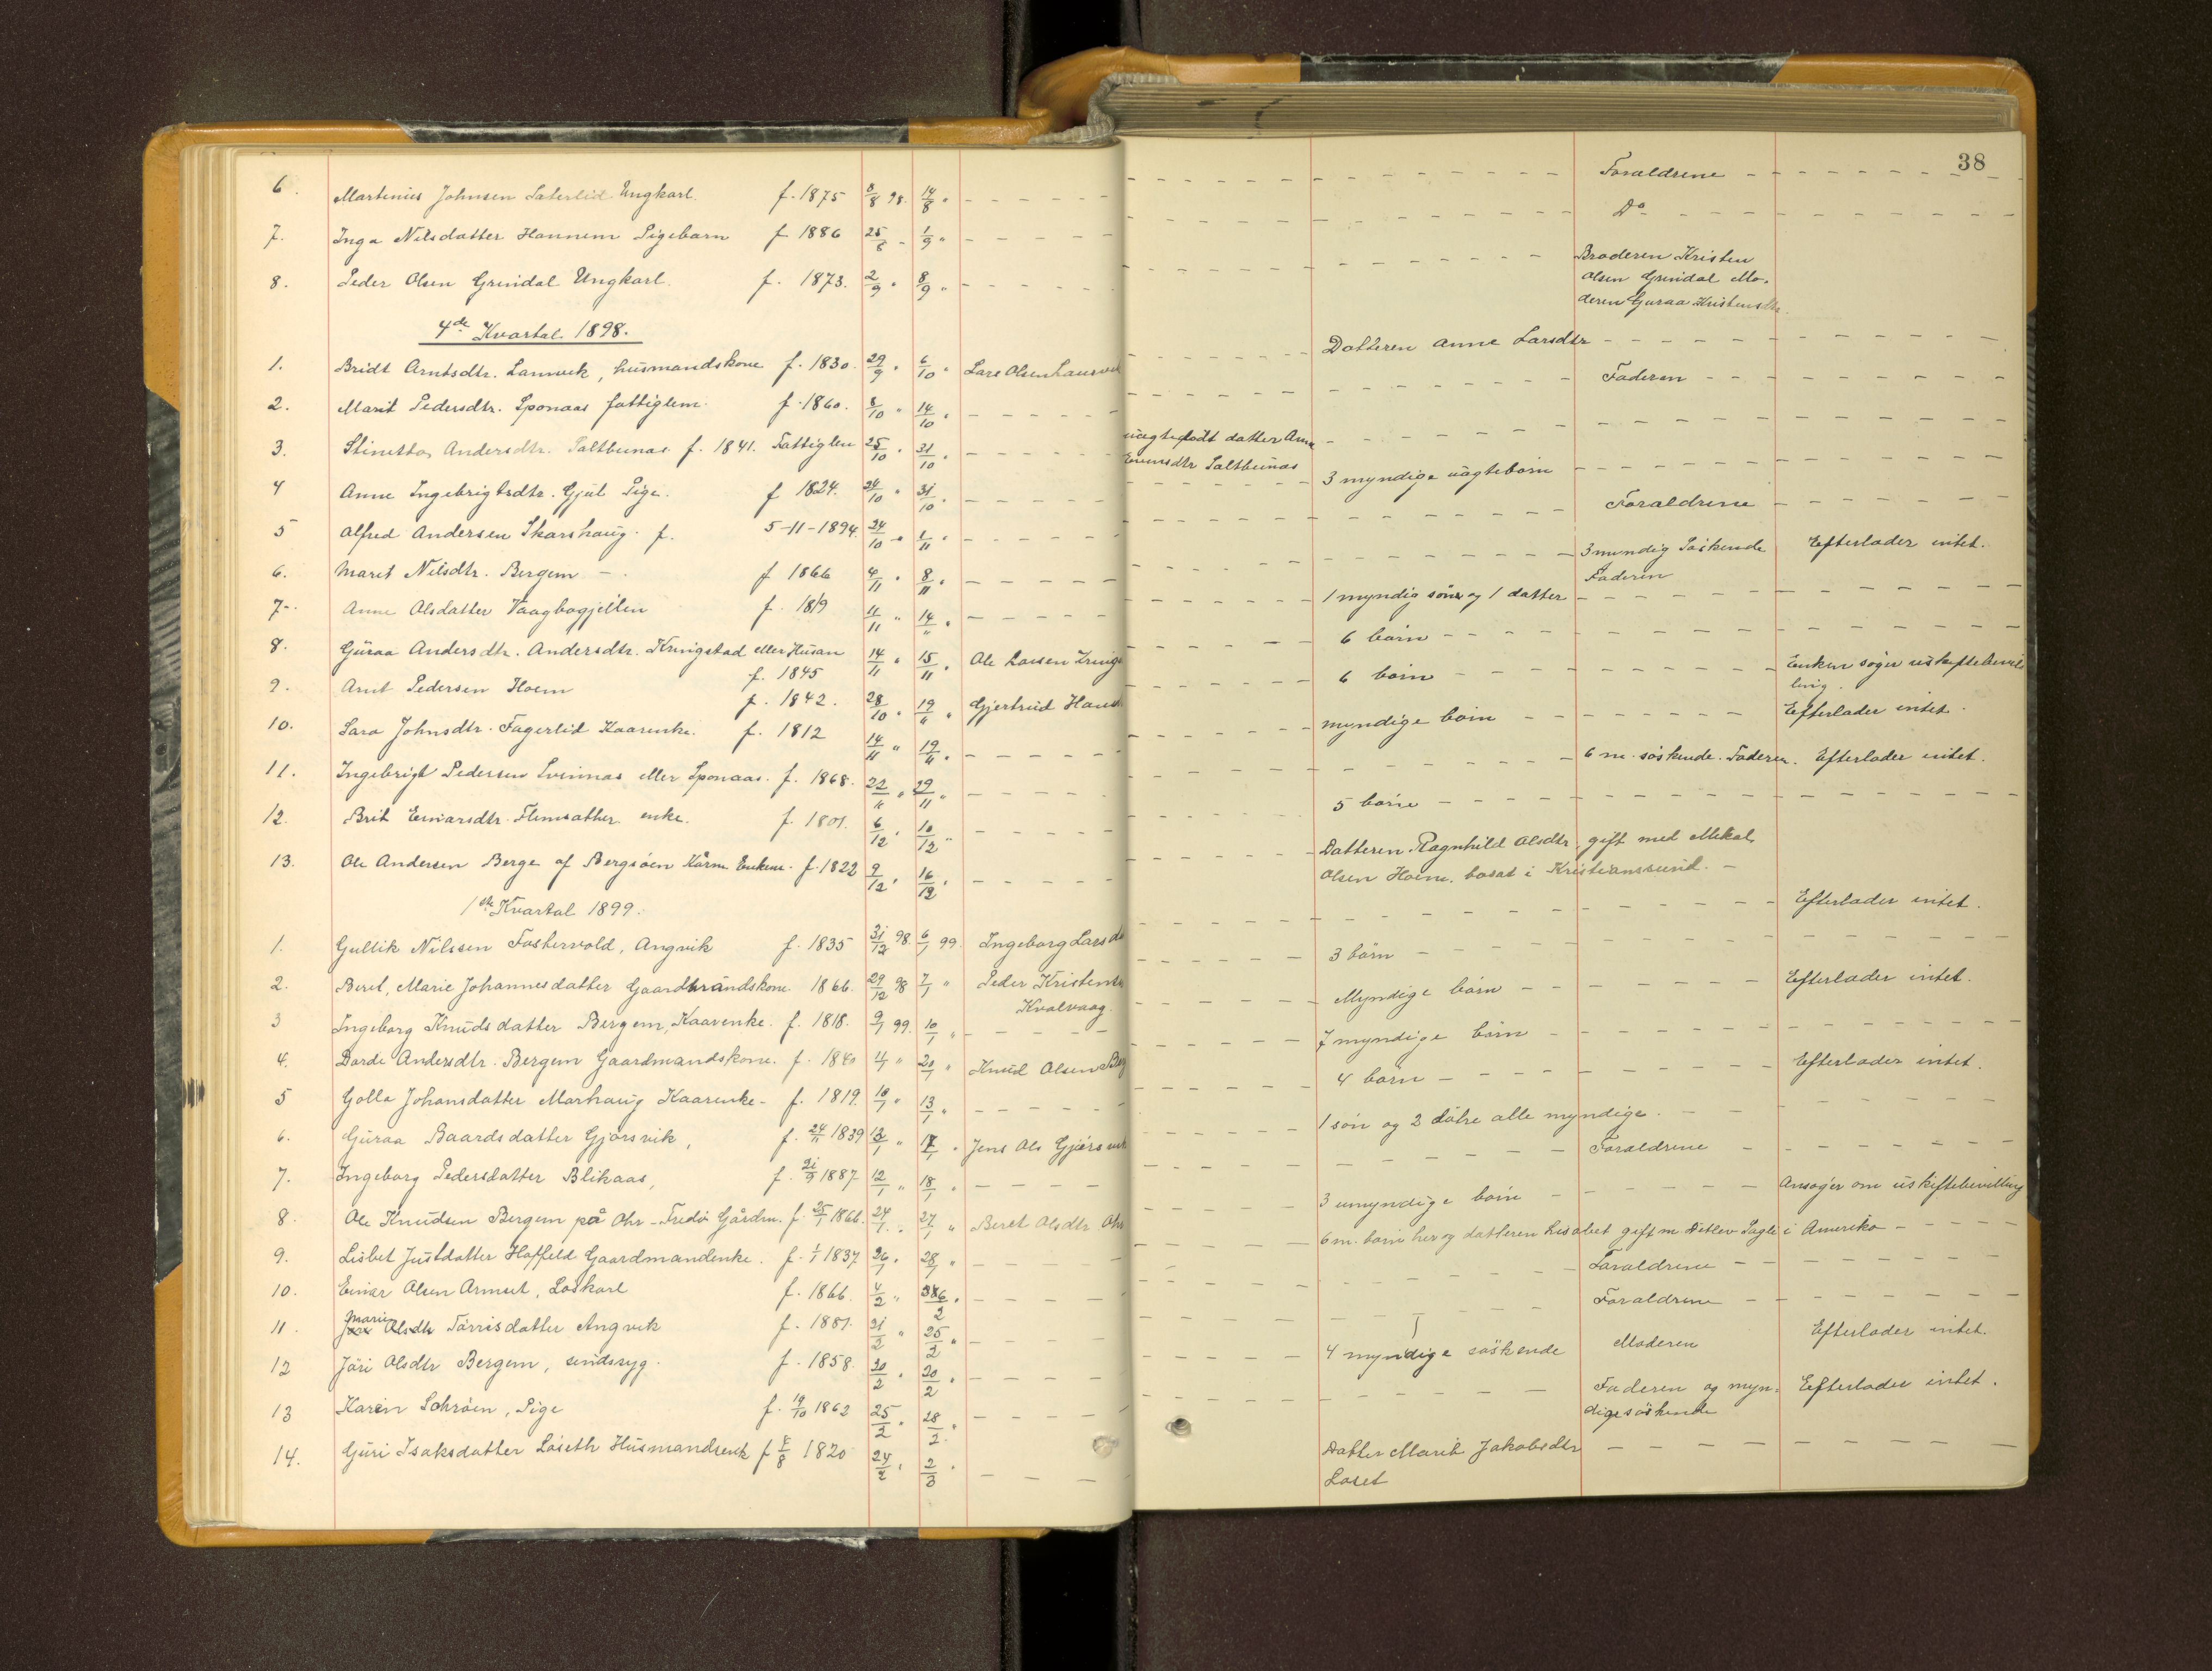 38
6. Martinius Johnsen Saterlid Ungkarl. f. 1875 8/8 98. 14/8 " Foraldrene
7. Inga Nilsdatter Hannem Pigebarn f 1886 25/8 1/9 " Do
8. Peder Olsen Grindal Ungkarl. f. 1873. 2/9 " 8/9 " Broderen Kristen
Olsen Grindal Mo-
deren Guraa
4de Kvartal 1898.
1. Bridt Arntsdtr. Lanvek, husmandskone f. 1830. 29/9 " 6/10 " Lars Olsen Datteren Anne Larsdtr
2. Marit Pedersdtr. Sponaas fattiglem f. 1860. 8/10 " 14/10 " Faderen
3. Andersdtr. Saltbunas. f. 1841. Fattiglem 25/10 " 31/10 " uægtefødt datter Anne
Saltbunas
4 Anne Ingebrigtsdtr. Gjul Pige. f 1824. 26/10 " 31/10 " 3 myndige uagtebørn
5 Alfred Andersen Skarshaug. f. 5-11-1894. 24/10 " 1/11 " Foraldrene
6. Marit Nilsdtr. Bergem f 1866 4/11 " 8/11 " 3 myndig Søskende Efterlader intet.
Faderen
7. Anne Olsdatter Vaagbøgjellen f. 1819 4/11 " 14/11 " 1 myndig søn og 1 datter
8. Guraa Andersdtr. Andersdtr. Kringstad eller Husan 14/11 " 15/11 " Ole Larsen 6 børn
f. 1845
9. Arnt Pedersen Hoem f. 1842. 28/10 " 19/11 " Gjertrud 6 børn Enken søger uskiftebevil
ling.
10. Sara Johnsdtr. Fagerlid Kaarenke. f. 1812 14/11 " 19/11 " myndige børn Efterlader intet.
11. Ingebrigt Pedersen eller Sponaas. f. 1868. 22/11 " 29/11 " 6 m. søskende. Faderen. Efterlader intet.
12. Brit Einarsdtr. enke. f. 1801. 6/12 " 10/12 " 5 børn
13. Ole Andersen Berge af Bergsøen f. 1822 9/12 " 16/12 " Datteren Ragnhild Olsdtr, gift med Mikal
Olsen Hoem, bosat i Kristianssund.
1ste Kvartal 1899.
1. Gullik Nilssen Fostervold, Angvik f. 1835 31/12 98. 6/1 99. Ingeborg Lars Efterlader intet.
2. Beret, Marie Johannesdatter Gaardbrandskone 1866. 29/12 98 7/1 " Peder 3 børn
Kvalvaag.
3 Ingeborg Knudsdatter Bergem, Kaarenke. f. 1818. 9/1 99. 10/1 " Myndige børn Efterlader intet.
4. Dorde Andersdtr. Bergem Gaardmandskone. f. 1840 4/1 " 20/1 " Knud Olsen 7 myndige børn
5 Golla Johansdatter Marhaug Kaarenke f. 1819. 10/1 " 13/1 " 4 børn Efterlader intet.
6. Guraa Baardsdatter Gjørsvik, f. 24/11 1839 13/1 " 17/1 " Jens Ols 1 søn og 2 døtre alle myndige.
7. Ingeborg Pedersdatter Blikaas, f. 21/9 1887 12/1 " 18/1 " Foraldrene
8 Ole Knudsen Bergem på Ohr-Fredø Gårdm. f. 25/1 1866. 24/1 27/1 " Beret Olsdtr 3 umyndige børn Ansøger om uskiftebevilling
9. Lisbet Justdatter Hoffeld Gaardmandenke. f. 1/1 1837 26/1 " 28/1 " 6 m. børn her og datteren Lisabet gift m. i Amerika
10. Einar Olsen Armset, Løskarl f. 1866. 4/2 " Foraldrene
11. Marie Tørrisdatter Angvik f. 1881. 21/2 " 25/2 " Foraldrene
12 Jøri Olsdtr Bergem, sindssyg. f. 1858. 20/2 " 20/2 " 4 myndige søskende Moderen Efterlader intet.
13 Karen Schrøen, Pige f. 19/10 1862 25/2 " 28/2 " Faderen og myn- Efterlader intet.
dige søskende
14. Guri Isaksdatter Løseth Husmandsenk f 8/8 1820 24/2 " 2/3 " Datter Marit Jakobsdtr
Løset